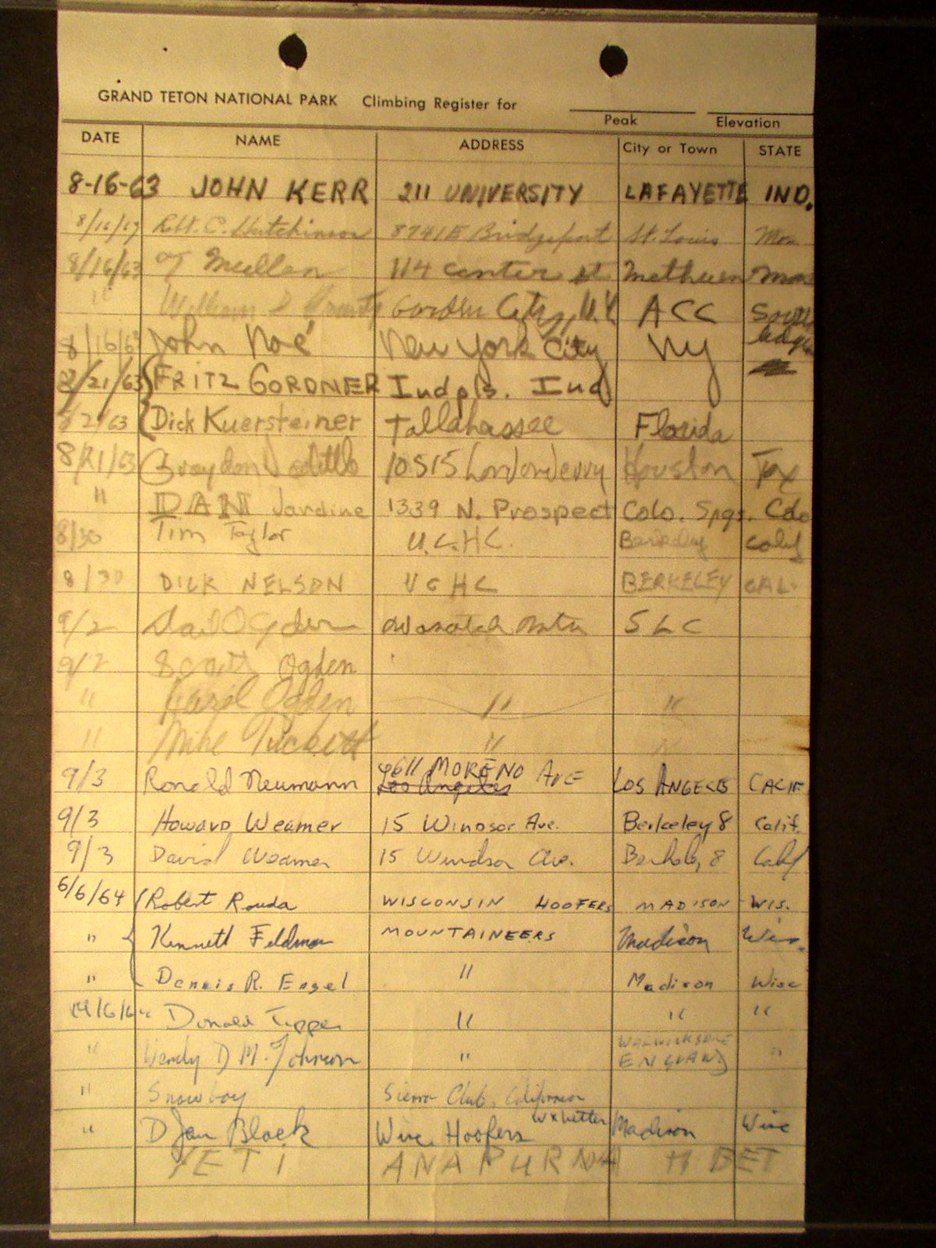 GRAND TETON NATIONAL PARK Climbing Register for
Peak Elevation
DATE NAME ADDRESS City or Town STATE
8-16-63 JOHN KERR 211 UNIVERSITY LAFAYETTE IND.
Robt. C. Hutchinson 8741E Bridgeport St. Louis Mo
8/16/63 Mullen 114 center st Methuen Mass
" William Garden City, N.Y. ACC South
8/16/63 John Noé New York City NY
8/21/63 FRITZ GORDNER Indpls. Ind
Dick Kuersteiner Tallahassee Florida
8/21/63 10515 Londonderry Houston Tex
" DAN Jardine 1339 N. Prospect Colo. Spgs. Colo
8/30 Tim Taylor U.C.H.C. Berkeley Calif
8/30 DICK NELSON UCHC BERKELEY CAL.
9/2 Ogden Wasatch Mtn SLC
9/2 Scott Ogden
" Ogden " "
" Mike Tuckett "
9/3 Ronald Neumann 4611 MORENO AVE LOS ANGELES CALIF
Los Angeles
9/3 Howard Weamer 15 Windsor Ave. Berkeley 8 Calif.
9/3 David Weamer 15 Windsor Ave. Berkeley 8 Calif
6/6/64 Robert Rouda WISCONSIN HOOFERS MADISON WIS.
" Kenneth Feldman MOUNTAINEERS Madison Wis.
" Dennis R. Engel " Madison Wisc
Donald Tipper " " "
" Wendy D M. Johnson " WARWICKSHIRE ENGLAND "
" Snowboy Sierra Club, California
" D Jan Block Wisc. Hoofers Madison Wisc
YETI ANAPURNA TIBET